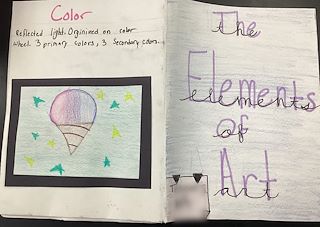 Color
Reflected light. Orginined on color
wheel. 3 primary colors, 3 Secondary colors.
The
the
Elements
elements
of
of
Art
art